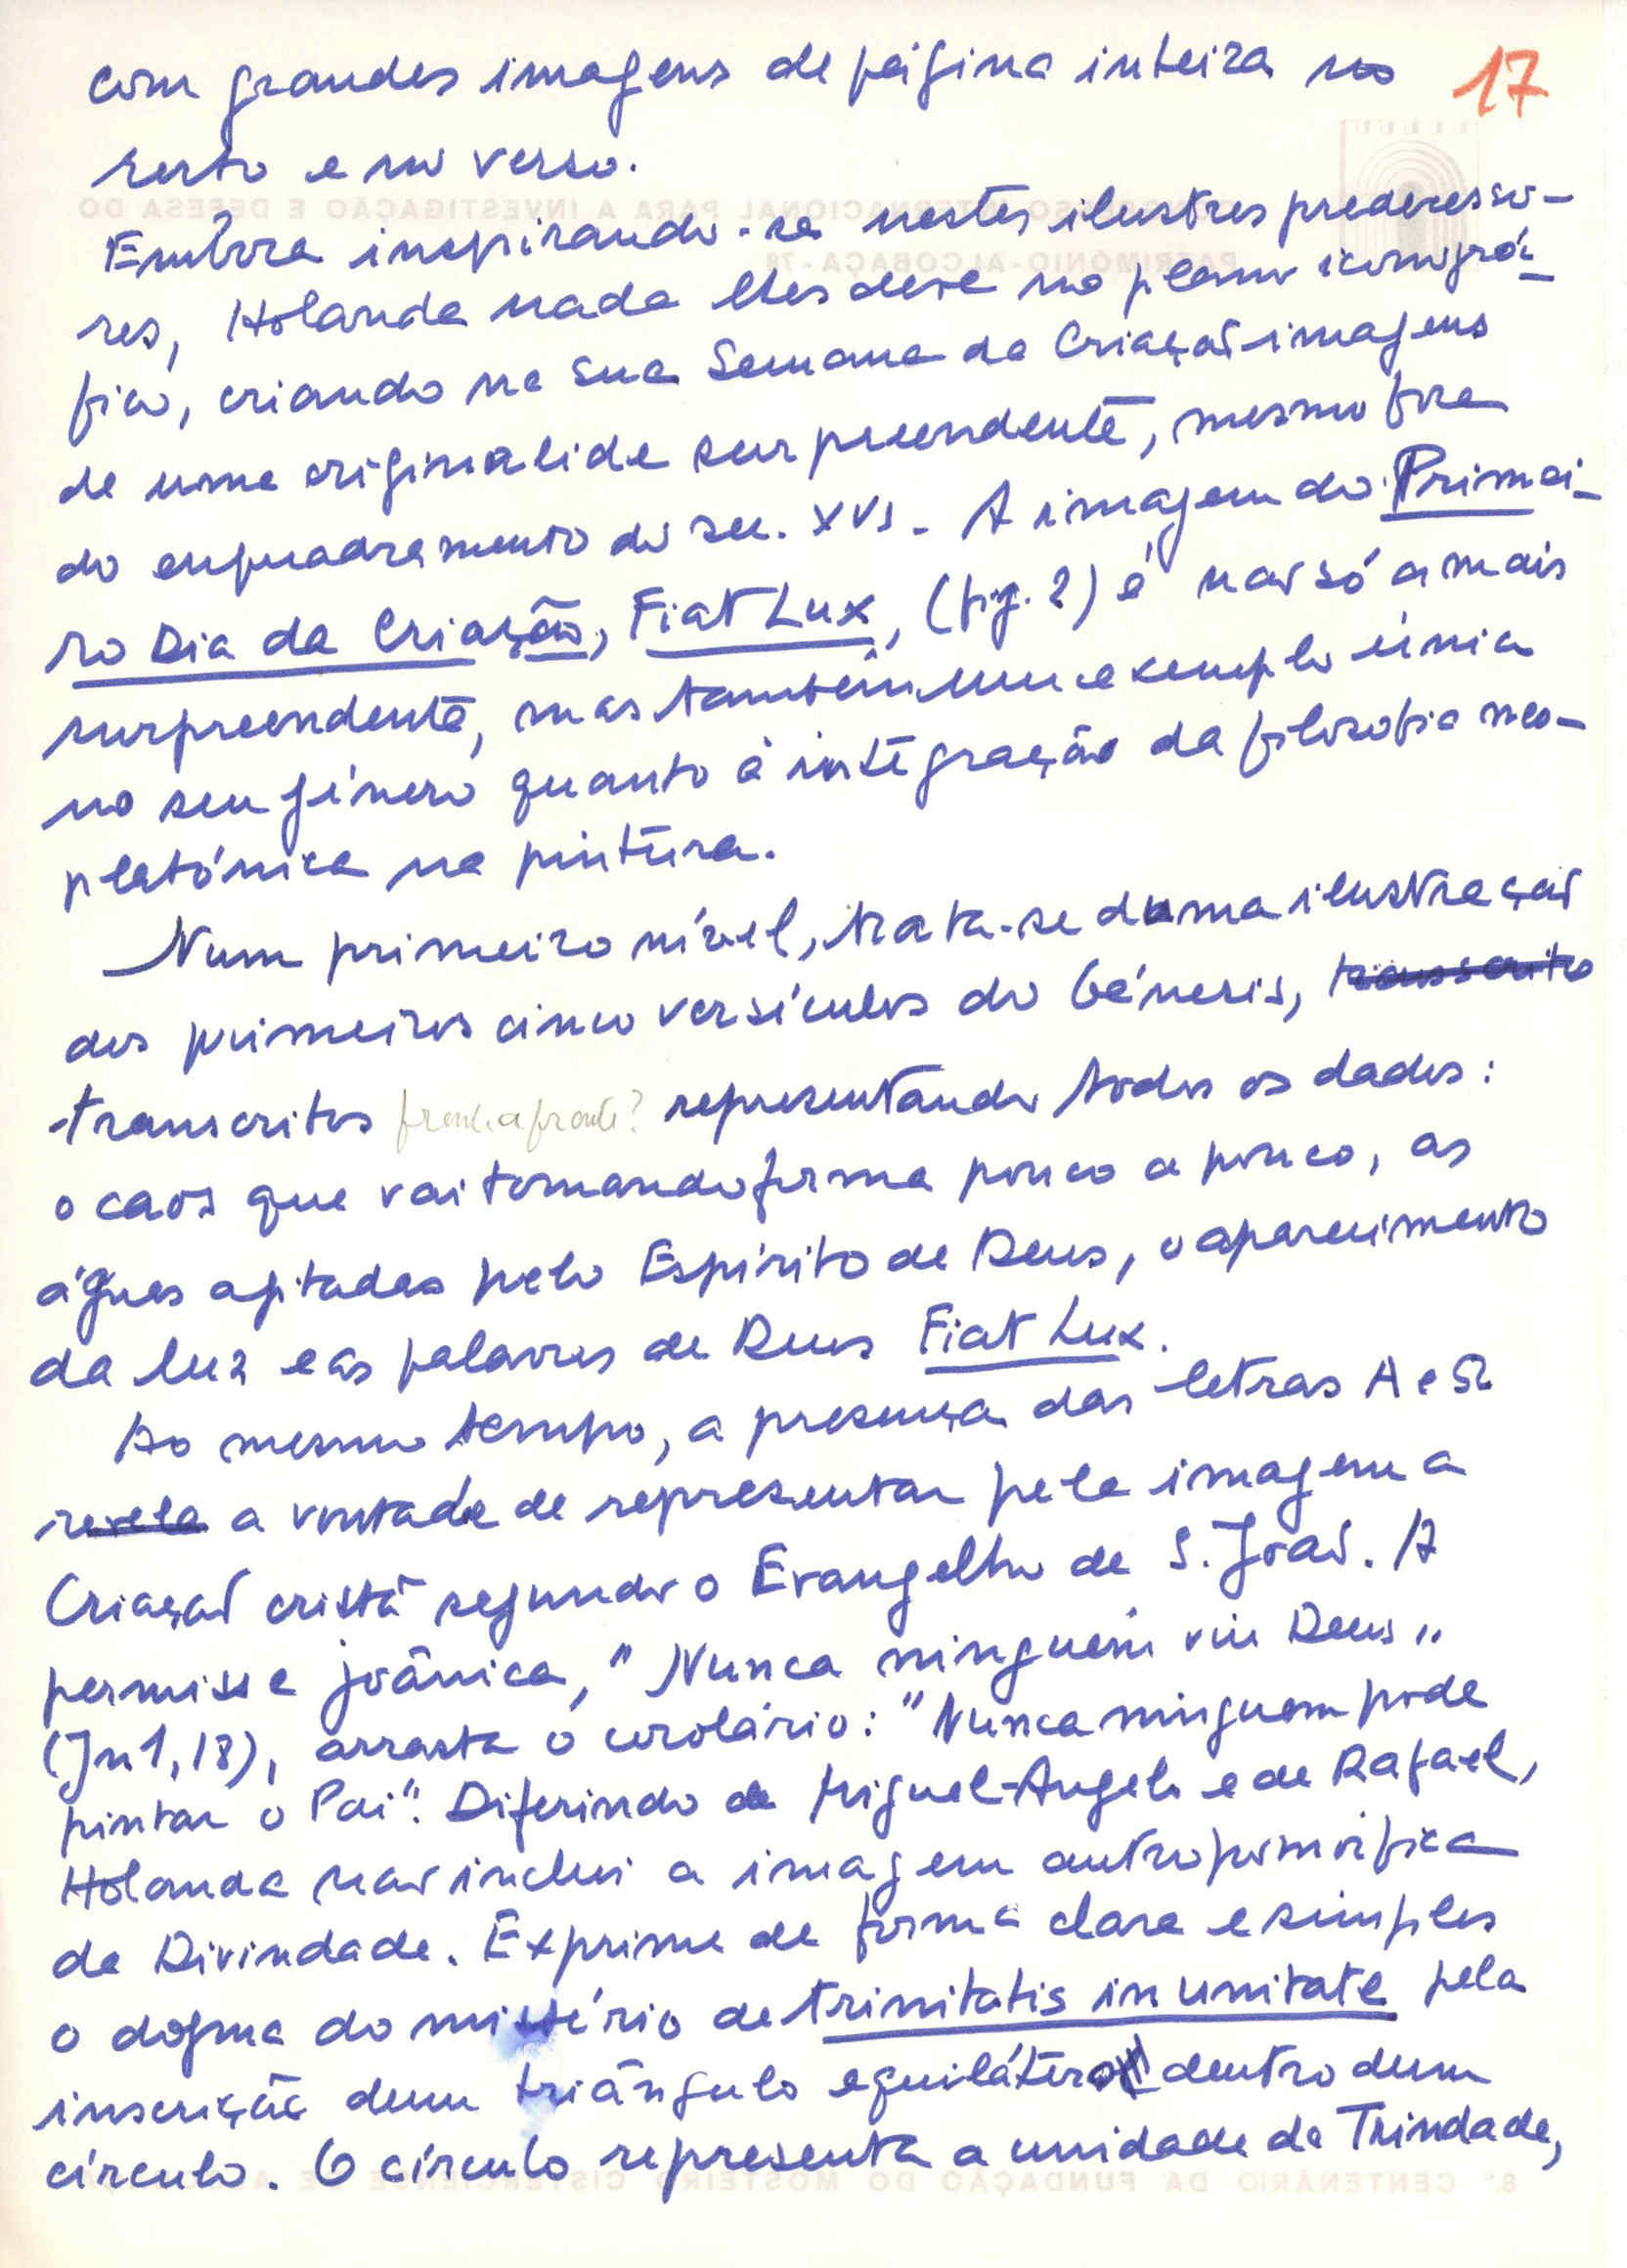 com grandes imagens de página inteira no 17
resto e no verso.
Embora inspirando-se nestes ilustres predecesso-
res, Holanda nada lhes deve no plano iconográ-
fico, criando na sua Semana da Criação imagens
de uma originalide surpreendente, mesmo fora
do enquadramento do séc. XVI. A imagem do Primei-
ro Dia da Criação, Fiat Lux, (fig. 2) é não só a mais
surpreendente, mas também um exemplo único
no seu género quanto à integração da filosofia neo-
platónica na pintura.
Num primeiro nível, trata-se duma ilustração
dos primeiros cinco versículos do Génesis, transcrito
transcritos frente a frente? representando todos os dados:
o caos que vai tomando forma pouco a pouco, as
águas agitadas pelo Espírito de Deus, o aparecimento
da luz e as palavras de Deus Fiat Lux.
Ao mesmo tempo, a presença das letras A e Ω
revela a vontade de representar pela imagem a
Criação cristã segundo o Evangelho de S. João. A
permissa joânica, "Nunca ninguém viu Deus"
(Jn 1, 18), arrasta o corolário: "Nunca ninguem pode
pintar o Pai". Diferindo de Miguel-Angelo e de Rafael,
Holanda não inclui a imagem antropomórfica
da Divindade. Exprime de forma clara e simples
o dogma do mistério de trinitatis in unitate pela
inscrição dum triângulo equilátero dentro dum
círculo. O círculo representa a unidade da Trindade,
CONGRESSO INTERNACIONAL PARA A INVESTIGAÇÃO E DEFESA DO
PATRIMÓNIO-ALCOBAÇA-78
8.º CENTENÁRIO DA FUNDAÇÃO DO MOSTEIRO CISTERCIENSE DE ALCOBAÇA